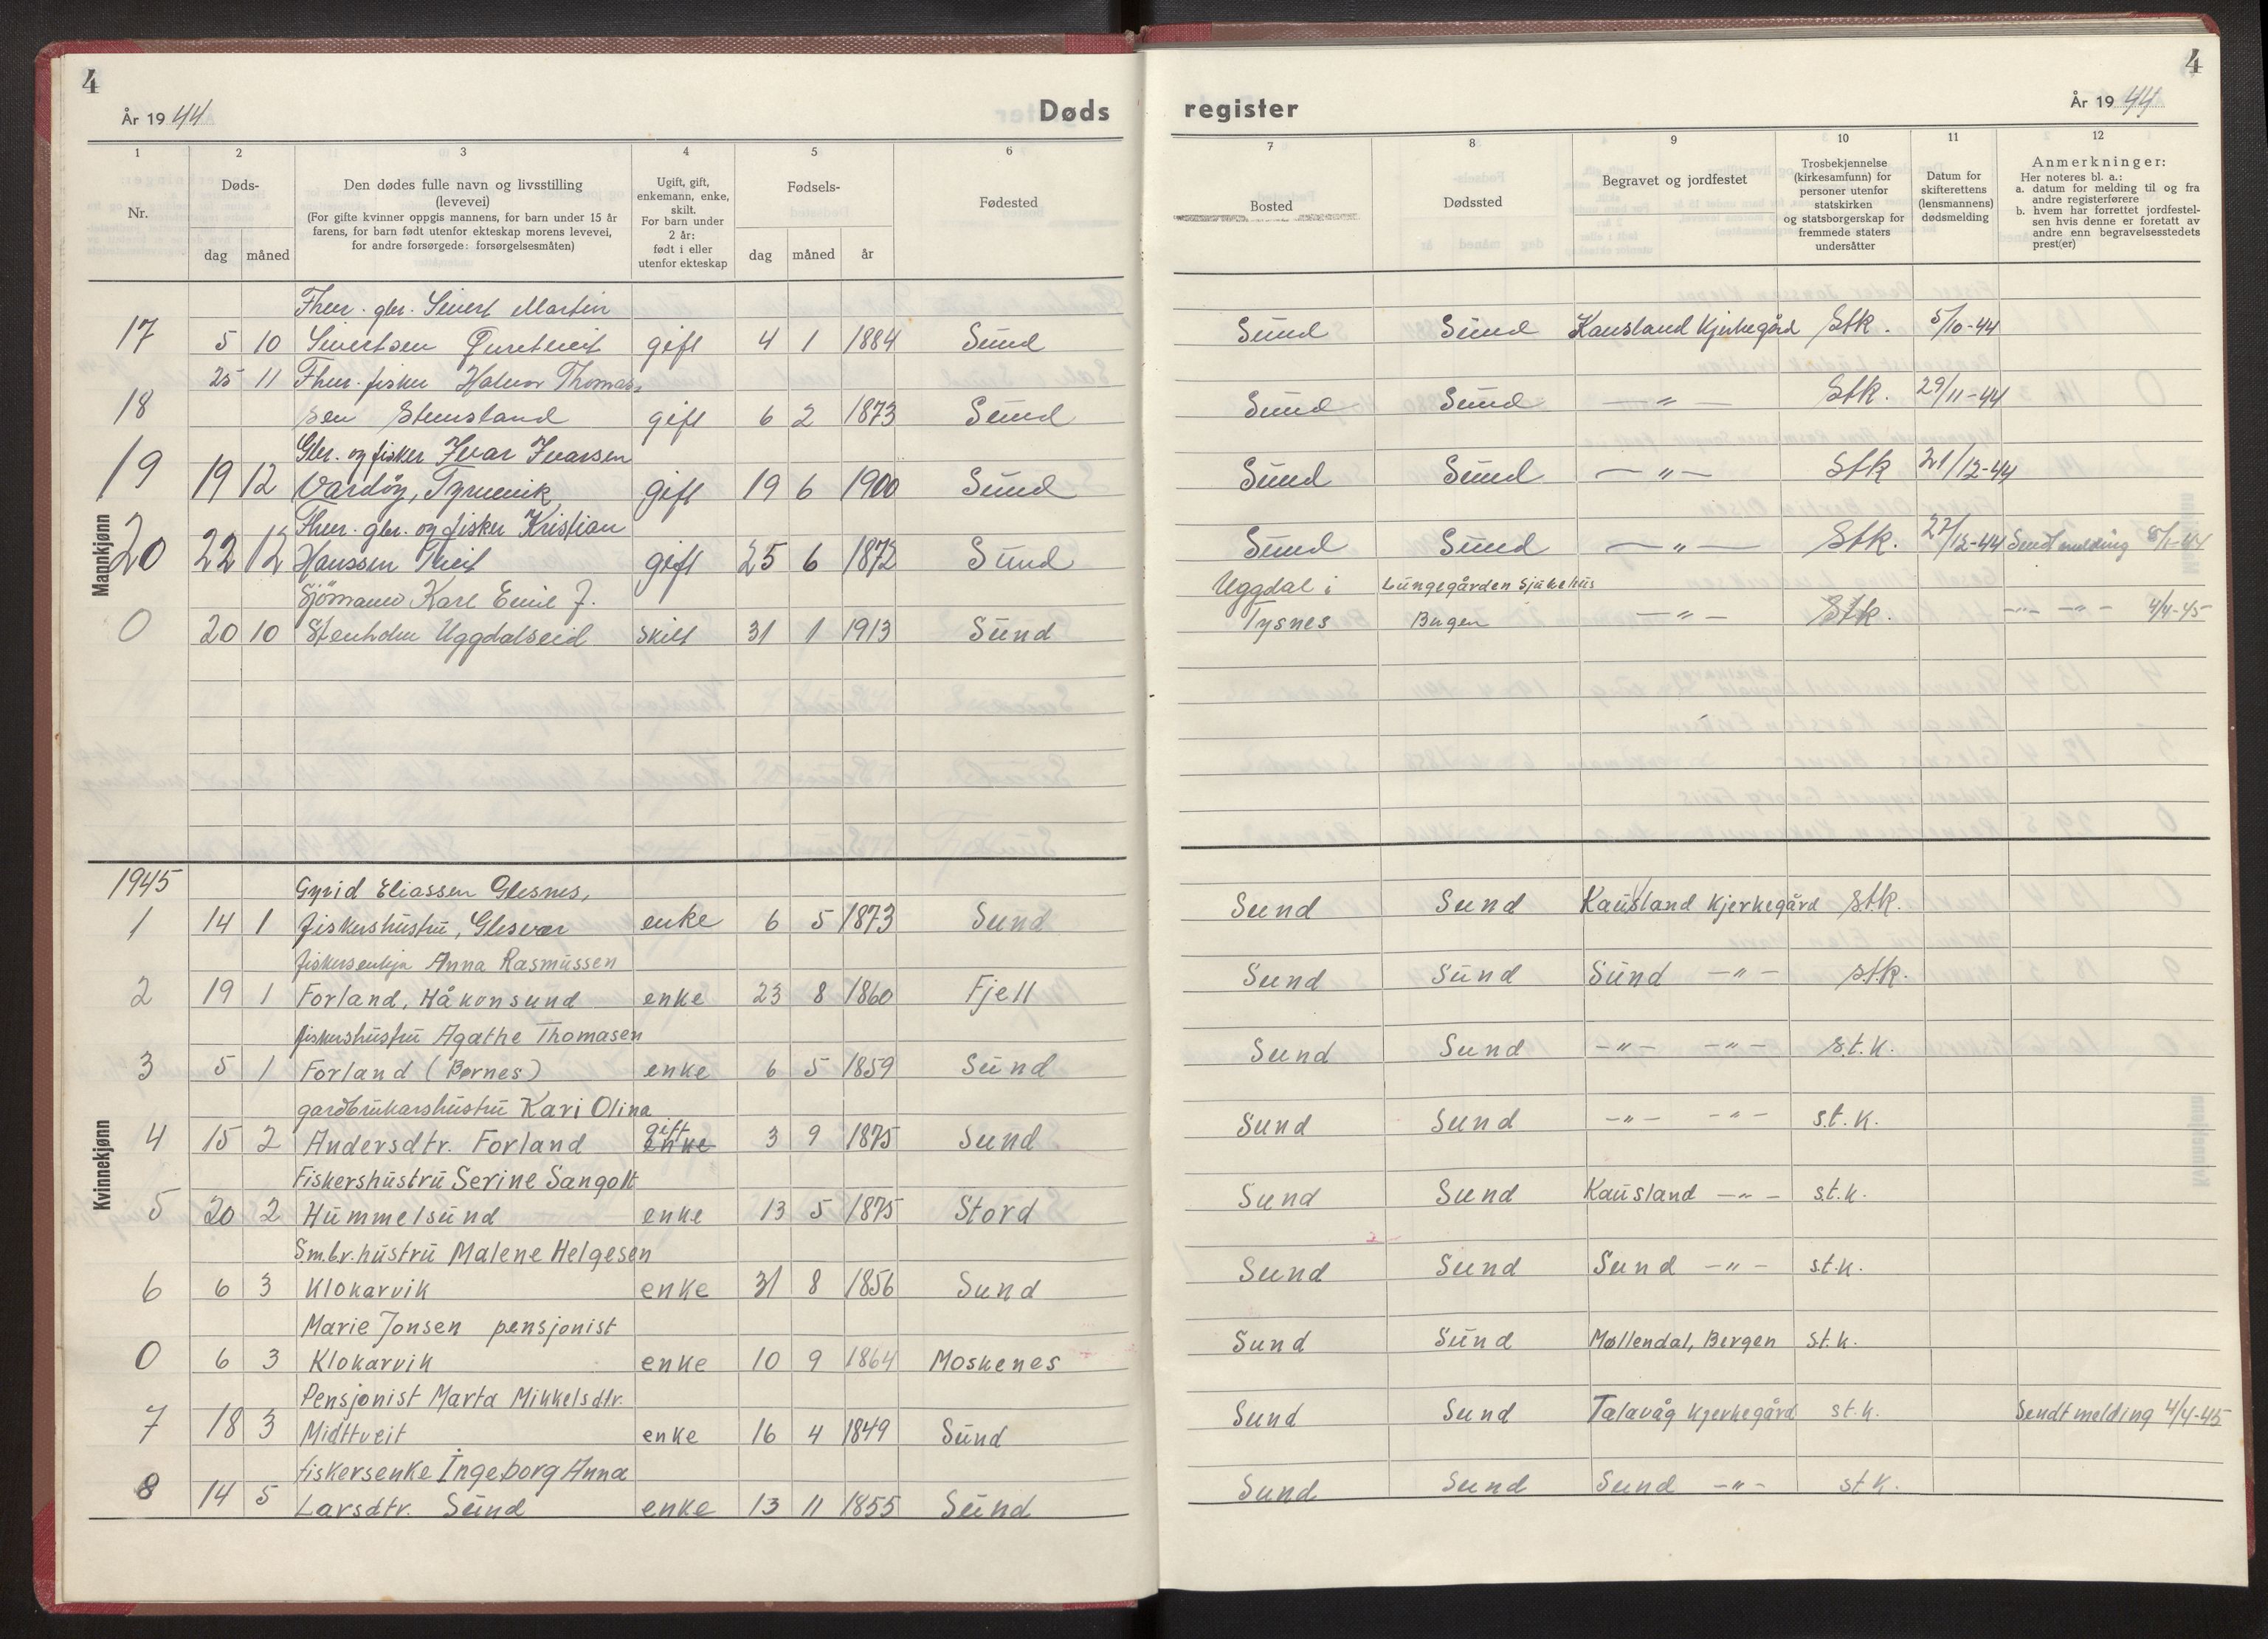 4
År 19 44
Døds
1
2
3
4
5
6
Nr.
Døds-
dag
måned
Den dødes fulle navn og livsstilling
(levevei)
(For gifte kvinner oppgis mannens, for barn under 15 år
farens, for barn født utenfor ekteskap morens levevei,
for andre forsørgede: forsørgelsesmåten)
Ugift, gift,
enkemann, enke,
skilt.
For barn under
2 år:
født i eller
utenfor ekteskap
Fødsels-
dag
måned
år
Fødested
Mannkjønn
Fhv. gbr. Sivert Martin
17 5 10 Sivertsen gift 4 1 1884 Sund
25 11 Fhv. fisker Halvor Thomas
18 sen Steinsland gift 6 2 1873 Sund
Gbr. og fisker Ivar Ivarsen
19 19 12 Vardöy, gift 19 6 1900 Sund
Fhv. gbr. og fisker Kristian
20 22 12 Hanssen Tveit gift 25 6 1872 Sund
Sjömann Karl Emil J.
0 20 10 Stenholm Uggdalseid skilt 31 1 1913 Sund
Kvinnekjønn
1945 Gyrid Eliassen Glesnes,
1 14 1 fiskershustru, Glesvær enke 6 5 1873 Sund
fiskersenkja Anna Rasmussen
2 19 1 Forland, Håkonsund enke 23 8 1860 Fjell
fiskershustru Agathe Thomasen
3 5 1 Forland (Børnes) enke 6 5 1859 Sund
gardbrukarshustru Kari Olina
4 15 2 Andersdtr. Forland gift enke 3 9 1875 Sund
Fiskershustru Serine Sangolt
5 20 2 Hummelsund enke 13 5 1875 Stord
Sm.br.hustru Malene Helgesen
6 6 3 Klokarvik enke 31 8 1856 Sund
Marie Jonsen pensjonist
0 6 3 Klokarvik enke 10 9 1864 Moskenes
Pensjonist Marta Mikkelsdtr.
7 18 3 Midttveit enke 16 4 1849 Sund
fiskersenke Ingeborg Anna
8 14 5 Larsdtr. Sund enke 13 11 1855 Sund
4
register
År 19 44
7
8
9
10
11
12
Bosted
Dødssted
Begravet og jordfestet
Trosbekjennelse
(kirkesamfunn) for
personer utenfor
statskirken
og statsborgerskap for
fremmede staters
undersåtter
Datum for
skifterettens
(lensmannens)
dødsmelding
Anmerkninger:
Her noteres bl. a.:
a. datum for melding til og fra
andre registerførere
b. hvem har forrettet jordfestel-
sen hvis denne er foretatt av
andre enn begravelsesstedets
prest(er)
Sund Sund Kausland Kjerkegård Stk. 5/10-44
Sund Sund — " — Stk. 29/11-44
Sund Sund — " — Stk 21/12-44
Sund Sund — " — Stk. 22/12-44 Sendt melding
Uggdal i Lungegården Sjukehus
Tysnes Bngen — " — Stk. — " — — " — 4/4-45
Sund Sund Kausland Kjerkegård S.t.k.
Sund Sund Sund — " — s.t.k.
Sund Sund — " — — " — s.t.k.
Sund Sund — " — — " — s.t.k.
Sund Sund Kausland — " — s.t.k.
Sund Sund Sund — " — s.t.k.
Sund Sund Møllendal, Bergen s.t.k.
Sund Sund Telavåg Kjerkegård s.t.k. Sendt melding 4/4-45
Sund Sund Sund — " — s.t.k.